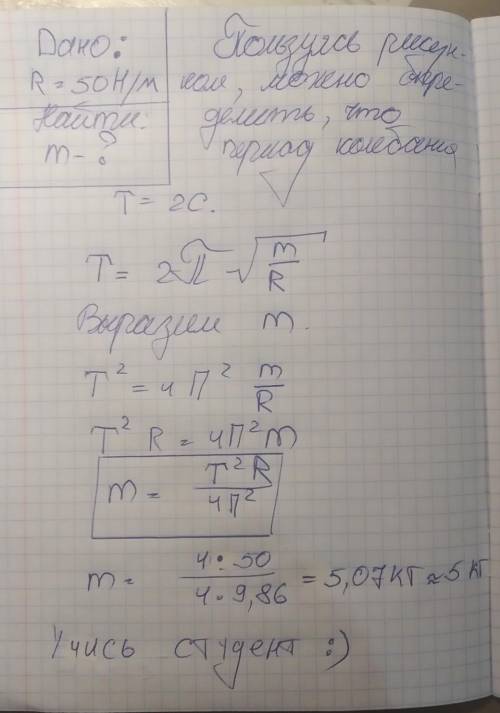 Дано:
R = 50 Н/м
Найти:
m - ?
Пользуясь рисун-
ком, можно опре-
делить, что
период колебания
T = 2с.
T = 2π √(m/R)
Выразим m.
T² = 4π² m/R
T² R = 4π² m
m = T² R / 4π²
m = 4 · 50 / 4 · 9,86 = 5,07 кг ≈ 5 кг
Учись студент :)